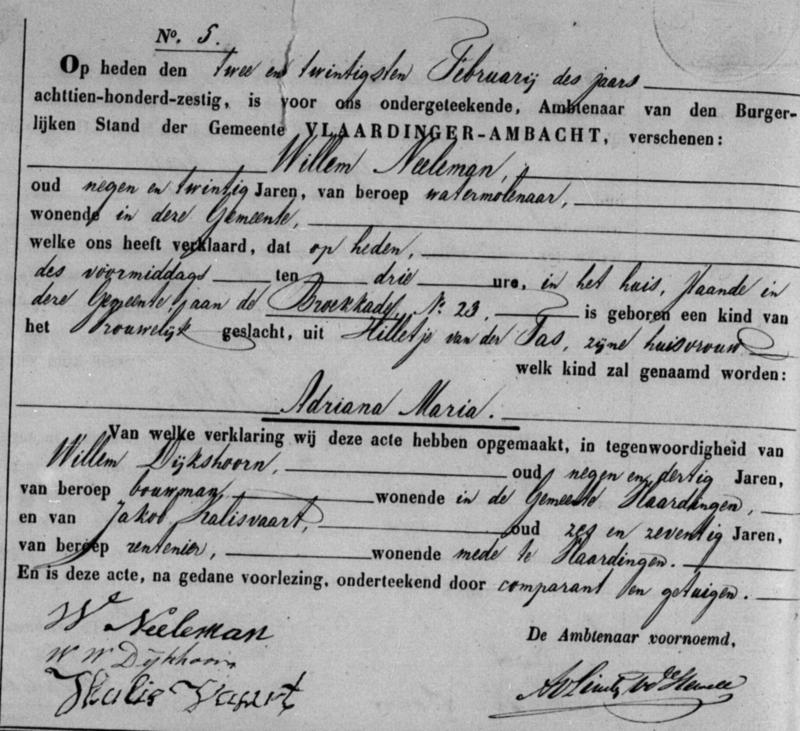 No. 5.
Op heden den twee en twintigsten Februarij des jaars
achttien-honderd-zestig, is voor ons ondergeteekende, Ambtenaar van den Burger-
lijken Stand der Gemeente VLAARDINGER-AMBACHT, verschenen:
Willem Neeleman,
oud negen en twintig Jaren, van beroep watermolenaar,
wonende in deze Gemeente,
welke ons heeft verklaard, dat op heden,
des voormiddags ten drie ure, in het huis, staande in
deze Gemeente, aan de Broekkade, N.º 23, is geboren een kind van
het Vrouwelijk geslacht, uit Hilletje van der Tas, zijne huisvrouw
welk kind zal genaamd worden:
Adriana Maria.
Van welke verklaring wij deze acte hebben opgemaakt, in tegenwoordigheid van
Willem Dijkshoorn, oud negen en dertig Jaren,
van beroep bouwman, wonende in de Gemeente Vlaardingen,
en van Jakob halisvaart, oud zes en zeventig Jaren,
van beroep rentenier, wonende mede te Vlaardingen.
En is deze acte, na gedane voorlezing, onderteekend door comparant en getuigen.
Wm Neeleman
De Ambtenaar voornoemd,
W W Dijkhoorn